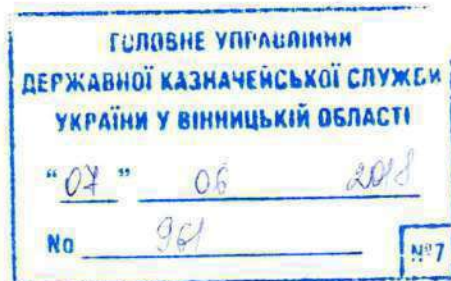 ГОЛОВНЕ УПРАВЛІННЯ
ДЕРЖАВНОЇ КАЗНАЧЕЙСЬКОЇ СЛУЖБИ
УКРАЇНИ У ВІННИЦЬКІЙ ОБЛАСТІ
"07" 06 2018
No 961
№7